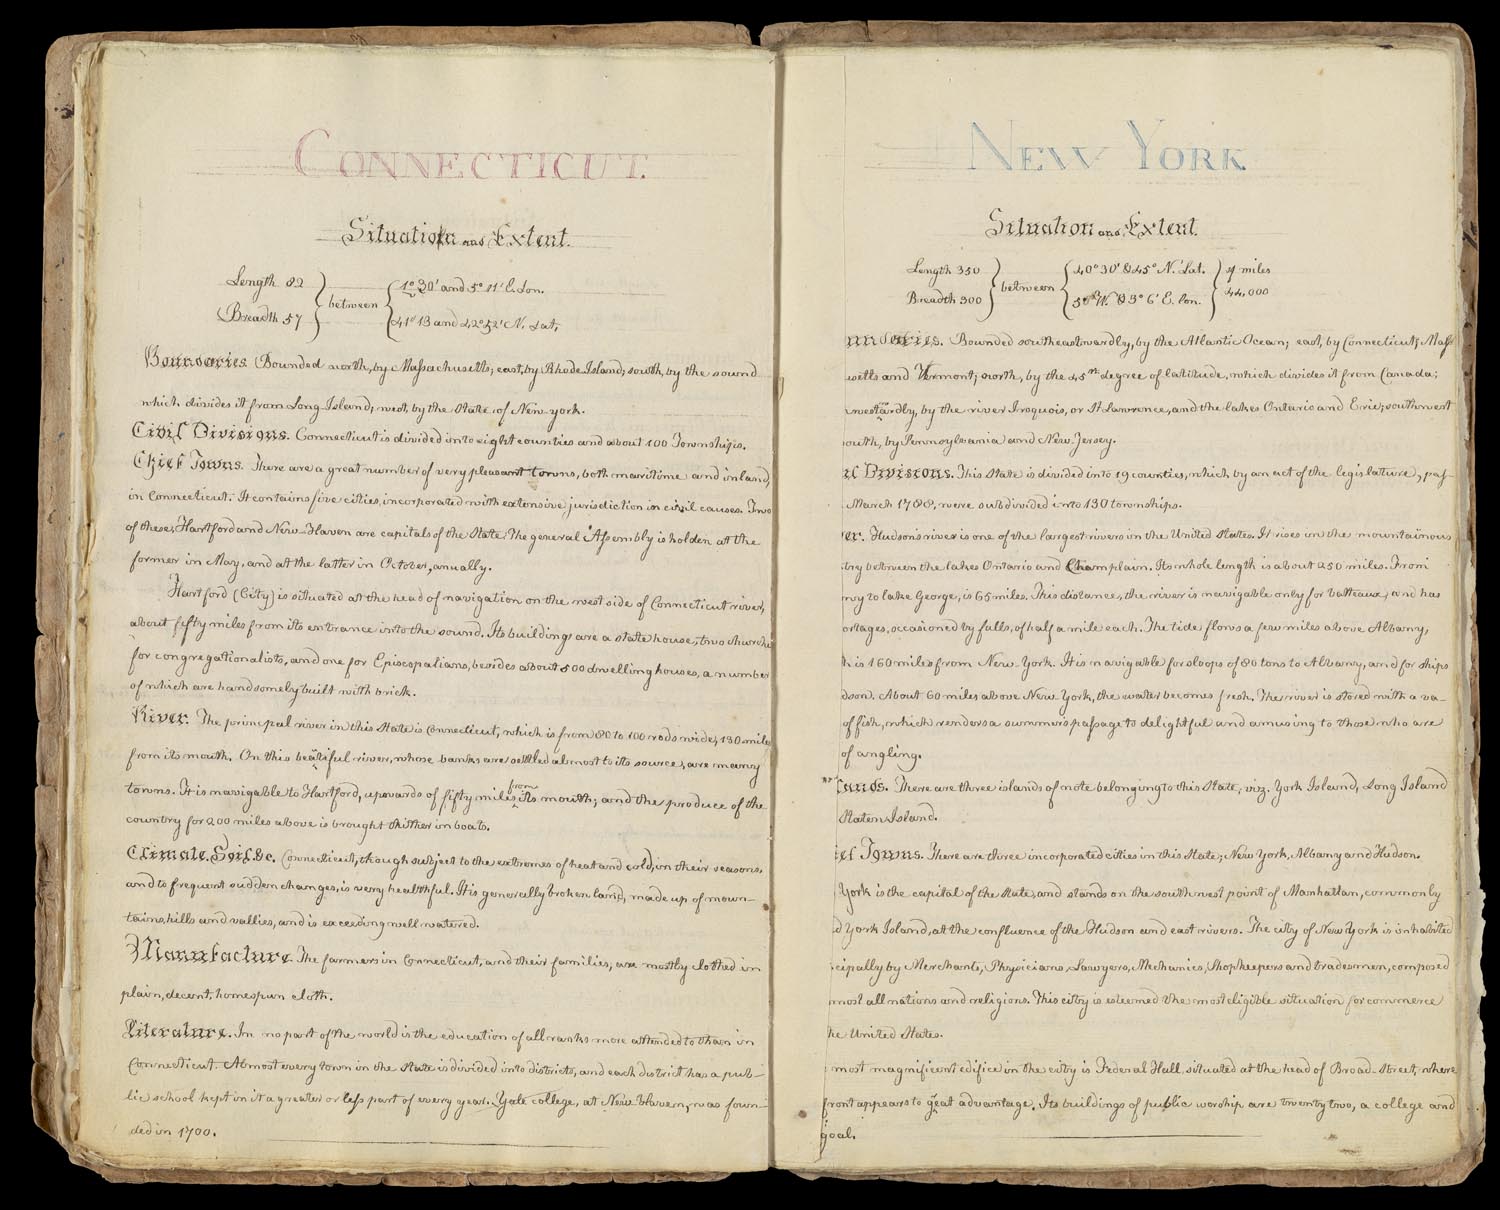 CONNECTICUT.
Situation and Extent.
Length 82
Breadth 57
between
1° 30' and 5° 11' E. Lon.
41° 13 and 42° 52' N. Lat,
Boundaries. Bounded north, by Massachusetts; east, by Rhode Island; south, by the sound
which divides it from Long-Island; west, by the State of New-york.
Civil Divisions. Connecticut is divided into eight counties and about 100 Townships.
Chief Towns. There are a great number of very pleasant towns, both maritime and inland,
in Connecticut. It contains five cities, incorporated with extensive jurisdiction in civil causes. Two
of these, Hartford and New-Haven are capitals of the State. The general Assembly is holden at the
former in May, and at the latter in October, anually.
Hartford (City) is situated at the head of navigation on the west side of Connecticut river,
about fifty miles from its entrance into the sound. Its buildings are a state house; two churche
for congregationalists, and one for Episcopalians, besides about 500 dwelling houses, a number
of which are handsomely built with brick.
River. The principal river in this State is Connecticut, which is from 80 to 100 rods wide, 130 miles
from its mouth. On this beatiful river, whose banks are settled almost to its source, are many
towns. It is navigable to Hartford, upwards of fifty miles from its mouth; and the produce of the
country for 200 miles above is brought thither in boats.
Climate, Soil &c. Connecticut, though subject to the extremes of heat and cold, in their seasons,
and to frequent sudden changes, is very healthful. It is generally broken land, made up of moun-
tains, hills and vallies, and is exceeding well watered.
Manufacture. The farmers in Connecticut, and their families, are mostly clothed in
plain, decent, homespun cloth.
Literature. In no part of the world is the education of all ranks more attended to than in
Connecticut. Almost every town in the State is divided into districts, and each district has a pub-
lic school kept in it a greater or less part of every year. Yale college, at New Haven, was foun-
ded in 1700.
NEW YORK
Situation and Extent.
Length 350
Breadth 300
between
40° 30' & 45° N. Lat.
5° W. & 3° 6' E. lon.
miles
44,000
undaries. Bounded southeastwardly, by the Atlantic Ocean; east, by Connecticut, Mass
usetts and Vermont; north, by the 45th degree of latitude, which divides it from Canada;
westardly, by the river Iroquois, or St Lawrence, and the lakes Ontario and Erie; southwest
south, by Pennsylvania and New Jersey.
il Divisions. This State is divided into 19 counties, which by an act of the legislature, pas-
March 1788, were subdivided into 130 townships.
er. Hudsons river is one of the largest rivers in the United States. It rises in the mountainous
try between the lakes Ontario and Champlain. Its whole length is about 250 miles. From
ny to lake George, is 65 miles. This distance, the river is navigable only for batteaux, and has
ortages, occasioned by falls, of half a mile each. The tide flows a few miles above Albany,
h is 160 miles from New-York. It is navigable for sloops of 80 tons to Albany, and for ships
dson. About 60 miles above New-York, the water becomes fresh. The river is stored with a va-
of fish, which renders a summer passage to delightful and amusing to those who are
of angling.
lands. There are three islands of note belonging to this State, viz. York Island, Long Island
Staten Island.
ief Towns. There are three incorporated cities in this State; New York, Albany and Hudson.
York is the capital of the State, and stands on the southwest point of Manhattan, commonly
d York Island, at the confluence of the Hudson and east rivers. The city of New York is inhabited
cipally by Merchants, Physicians, Lawyers, Mechanics, Shopkeepers and tradesmen, composed
most all nations and religions. This city is esteemed the most eligible situation for commerce
he United States.
most magnificent edifice in the city is Federal Hall, situated at the head of Broad-Street, where
front appears to great advantage. Its buildings of public worship are twenty two, a college and
goal.